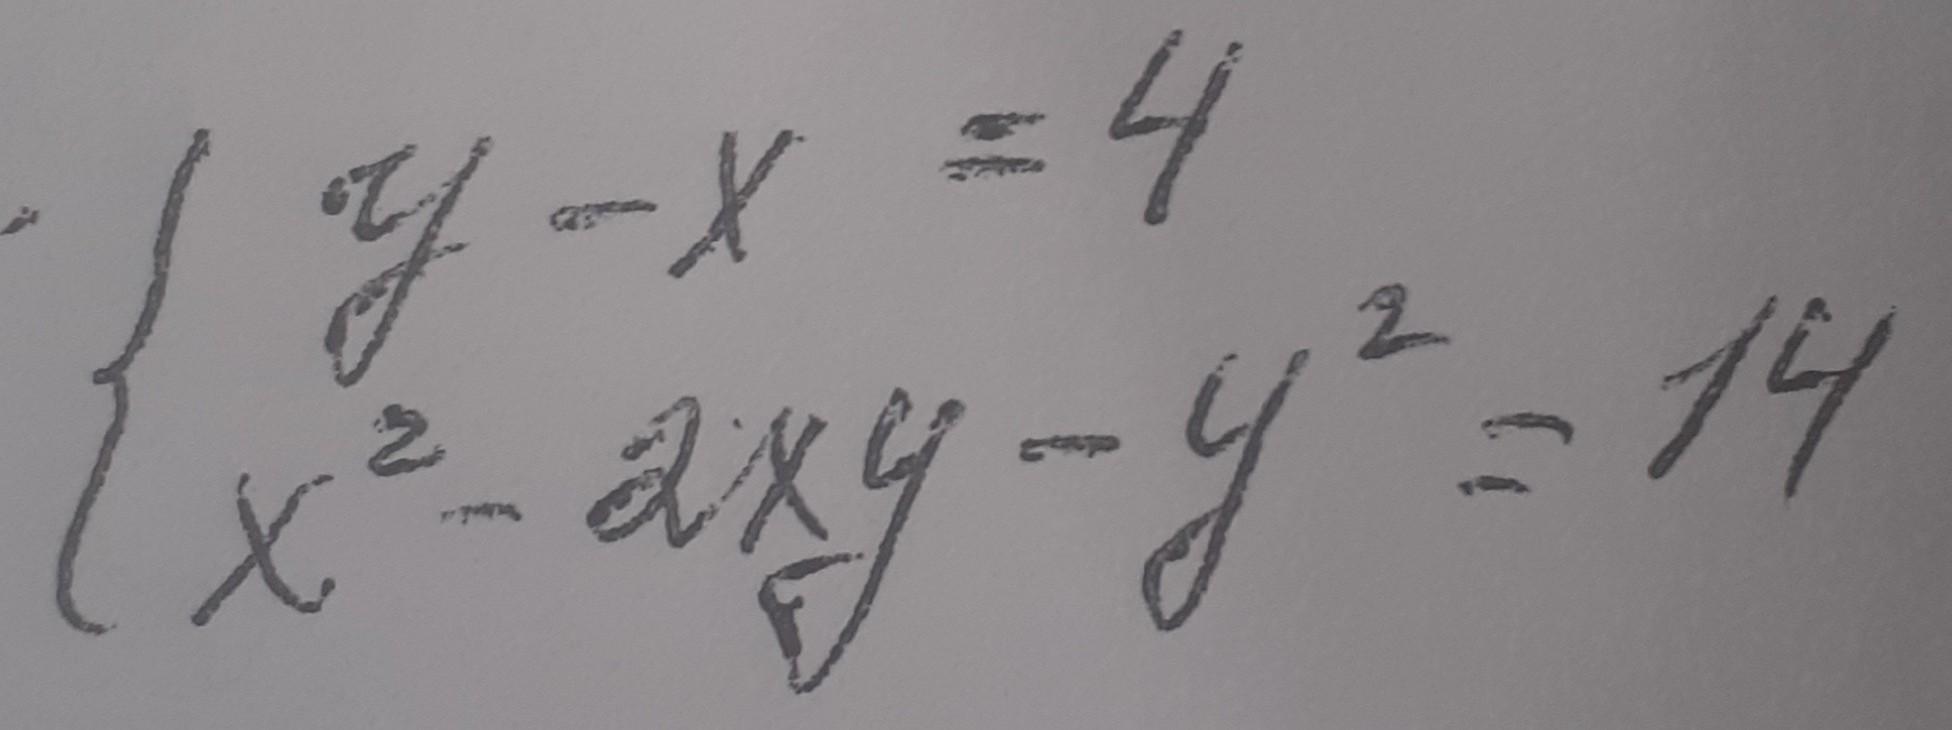 y - x = 4
x² - 2xy - y² = 14